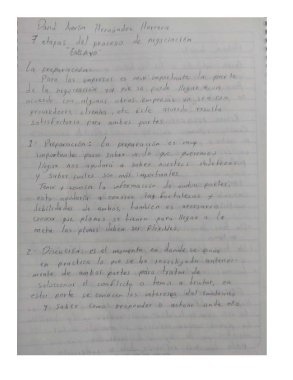 David Aaron Hernandez Herrera
7 etapas del proceso de negociación
"Ensayo"
La negociación:
Para las empresas es muy importante la parte
de la negociación ya que se puede llegar a un
acuerdo con algunas otras empresas ya sea con
proveedores clientes etc. Este acuerdo resulta
satisfactorio para ambas partes.
1- Preparación: La preparación es muy
importante para saber a lo que queremos
llegar nos ayudara a saber nuestros
y saber cuales son más importantes.
Para conocer la información de ambas partes,
esto ayudaría a conocer las fortalezas y
debilidades de ambas, también es necesario
conocer que planes se tienen para llegar a la
meta los planes deben ser flexibles.
2- Discusión: es el momento en donde se pone
en practica lo que se ha investigado anterior
mente de ambas partes para tratar de
solucionar el conflicto o tema a tratar, en
esta parte se conocen los intereses
y saber como responder o actuar ante